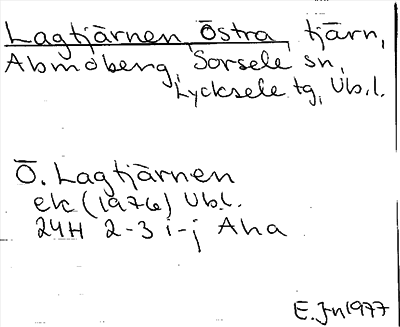 Lagtjärnen, Östra, tjärn,
Abmoberg, Sorsele sn,
Lycksele tg, Vb.l.
Ö. Lagtjärnen
ek (1976) Vb.l.
24H 2-3 i-j Aha
E. Jn 1977